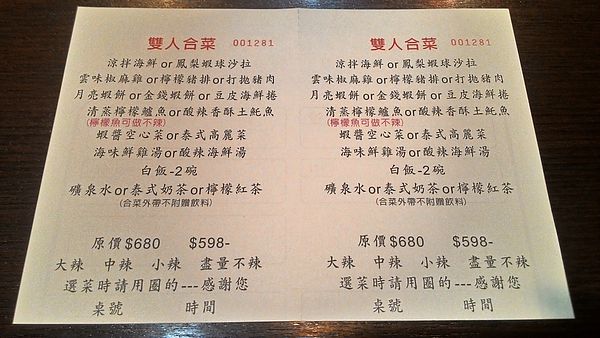 雙人合菜 001281
涼拌海鮮or鳳梨蝦球沙拉
雲味椒麻雞or檸檬豬排or打拋豬肉
月亮蝦餅or金錢蝦餅or豆皮海鮮捲
清蒸檸檬鱸魚or酸辣香酥土魠魚
(檸檬魚可做不辣)
蝦醬空心菜or泰式高麗菜
海味鮮雞湯or酸辣海鮮湯
白飯-2碗
礦泉水or泰式奶茶or檸檬紅茶
(合菜外帶不附贈飲料)
原價$680 $598-
大辣 中辣 小辣 盡量不辣
選菜時請用圈的---感謝您
桌號 時間
雙人合菜 001281
涼拌海鮮or鳳梨蝦球沙拉
雲味椒麻雞or檸檬豬排or打拋豬肉
月亮蝦餅or金錢蝦餅or豆皮海鮮捲
清蒸檸檬鱸魚or酸辣香酥土魠魚
(檸檬魚可做不辣)
蝦醬空心菜or泰式高麗菜
海味鮮雞湯or酸辣海鮮湯
白飯-2碗
礦泉水or泰式奶茶or檸檬紅茶
(合菜外帶不附贈飲料)
原價$680 $598-
大辣 中辣 小辣 盡量不辣
選菜時請用圈的---感謝您
桌號 時間